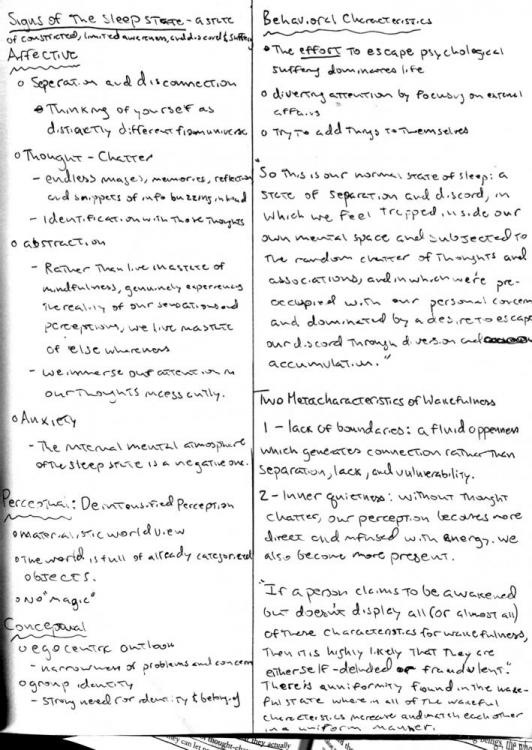 Signs of the Sleep State - a state
of constricted, limited awareness, and discord & suffering
Affective
o Seperation and disconnection
Thinking of yourself as
distinctly different from universe
o Thought - Chatter
- endless images, memories, reflection
and snippets of info buzzing in head
- Identification with those thoughts
o abstraction
- Rather than live in a state of
mindfulness, genuinely experiencing
the reality of our sensations and
perceptions, we live in a state
of else whereness
- we immerse our attention in
our thoughts incessantly.
o Anxiety
- The internal mental atmosphere
of the sleep state is a negative one.
Perceptual: Deintensified Perception
o materialistic world view
o the world is full of already categorized
objects.
o No "magic"
Conceptual
o egocentric outlook
- narrowness of problems and concern
o group identity
- strong need for identity & belonging
Behavioral Characteristics
• The effort to escape psychological
suffering dominates life
o diverting attention by focusing on external
affairs
o Try to add things to themselves
So this is our normal state of sleep: a
state of separation and discord, in
which we feel trapped inside our
own mental space and subjected to
the random chatter of thoughts and
associations, and in which we're pre-
occupied with our personal concerns
and dominated by a desire to escape
our discord through diversion and
accumulation."
Two Metacharacteristics of Wakefulness
1 - lack of boundaries: a fluid oppenness
which generates connection rather than
separation, lack, and vulnerability.
2 - Inner quietness: without thought
chatter, our perception becomes more
direct and infused with energy. we
also become more present.
"If a person claims to be awakened
but doesn't display all (or almost all)
of these characteristics for wakefulness,
then it is highly likely that they are
either self-deluded or fraudulent."
There is a uniformity found in the wake-
ful state where in all of the wakeful
characteristics increase and match each other
in a uniform manner.
they actually